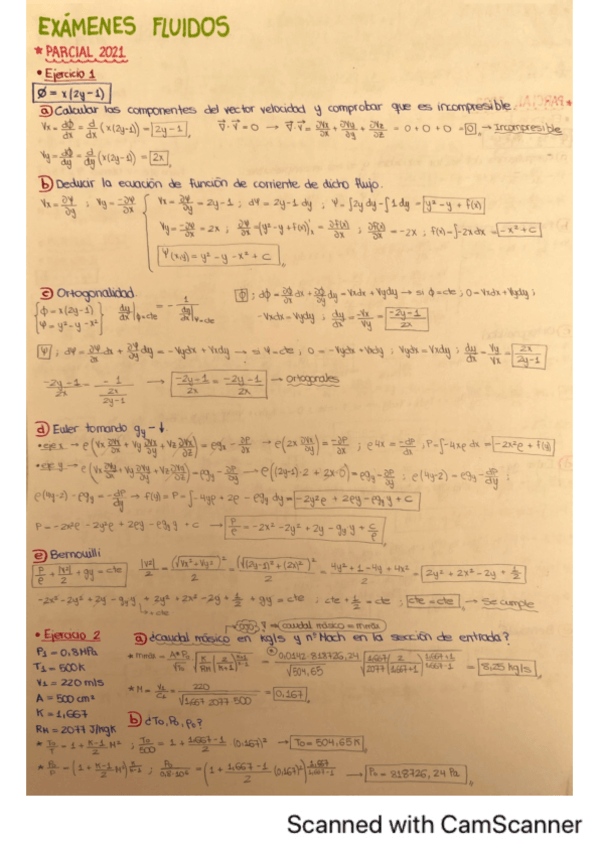 EXÁMENES FLUIDOS
* PARCIAL 2021
• Ejercicio 1
φ = x(2y-1)
a) Calcular las componentes del vector velocidad y comprobar que es incompresible.
Vx = dφ/dx = d/dx (x(2y-1)) = 2y-1, ∇·V = 0 → ∇·V = ∂Vx/∂x + ∂Vy/∂y + ∂Vz/∂z = 0+0+0 = 0, → Incompresible
Vy = dφ/dy = d/dy (x(2y-1)) = 2x,
b) Deducir la ecuación de función de corriente de dicho flujo.
Vx = ∂Ψ/∂y ; Vy = -∂Ψ/∂x
Vx = ∂Ψ/∂y = 2y-1 ; dΨ = 2y-1 dy ; Ψ = ∫2y dy - ∫1 dy = y² - y + f(x)
Vy = -∂Ψ/∂x = 2x ; ∂Ψ/∂x = (y²-y+f(x))'x = ∂f(x)/∂x ; ∂f(x)/∂x = -2x ; f(x) = ∫-2x dx = -x² + c
Ψ(x,y) = y² - y - x² + c
c) Ortogonalidad.
φ = x(2y-1)
Ψ = y²-y-x²
dy/dx|φ=cte = - 1 / dy/dx|Ψ=cte
φ ; dφ = ∂φ/∂x dx + ∂φ/∂y dy = Vxdx + Vydy → si φ=cte ; 0 = Vxdx + Vydy ;
-Vxdx = Vydy ; dy/dx = -Vx/Vy = -2y-1/2x
Ψ ; dΨ = ∂Ψ/∂x dx + ∂Ψ/∂y dy = -Vydx + Vxdy → si Ψ=cte ; 0 = -Vydx + Vxdy ; Vydx = Vxdy ; dy/dx = Vy/Vx = 2x/2y-1
-2y-1/2x = -1 / 2x/2y-1 → -2y-1/2x = -2y-1/2x → ortogonales
d) Euler tomando gy - ↓.
• eje x → ρ(Vx ∂Vx/∂x + Vy ∂Vx/∂y + Vz ∂Vx/∂z) = ρgx - ∂P/∂x → ρ(2x ∂Vx/∂y) = -∂P/∂x ; ρ4x = -∂P/∂x ; P = ∫-4xρ dx = -2x²ρ + f(y)
• eje y → ρ(Vx ∂Vy/∂x + Vy ∂Vy/∂y + Vz ∂Vy/∂z) = -ρgy - ∂P/∂y → ρ((2y-1)·2 + 2x·0) = ρgy - ∂P/∂y ; ρ(4y-2) = ρgy - ∂P/∂y ;
ρ(4y-2) - ρgy = -∂P/∂y → f(y) = P = ∫-4yρ + 2ρ - ρgy dy = -2y²ρ + 2ρy - ρgy y + c
P = -2x²ρ - 2y²ρ + 2ρy - ρgy y + c → P/ρ = -2x² - 2y² + 2y - gy y + c/ρ
e) Bernouilli
P/ρ + |V²|/2 + gy = cte |V²|/2 = (√Vx²+Vy²)²/2 = (√(2y-1)²+(2x)²)²/2 = 4y²+1-4y+4x²/2 = 2y² + 2x² - 2y + 1/2
-2x² - 2y² + 2y - gy y + 2y² + 2x² - 2y + 1/2 + gy = cte ; cte + 1/2 = cte ; cte = cte → Se cumple
→ cte
• Ejercicio 2
P1 = 0,8 MPa
T1 = 500 K
V1 = 220 m/s
A = 500 cm²
K = 1,667
RH = 2077 J/kgK
caudal másico = mmás
a) ¿caudal másico en kg/s y nº Mach en la sección de entrada?
= 8,25 kg/s
* M = V1/C1 = 220/√1,667·2077·500 = 0,167
b) ¿To, Po, ρo?
* To/T = 1 + K-1/2 M² ; To/500 = 1 + 1,667-1/2 (0,167)² → To = 504,65 K
* Po/P = (1 + K-1/2 M²)^K/K-1 ; Po/0,8·10⁶ = (1 + 1,667-1/2 (0,167)²)^1,667/1,667-1 → Po = 818726,24 Pa
Scanned with CamScanner